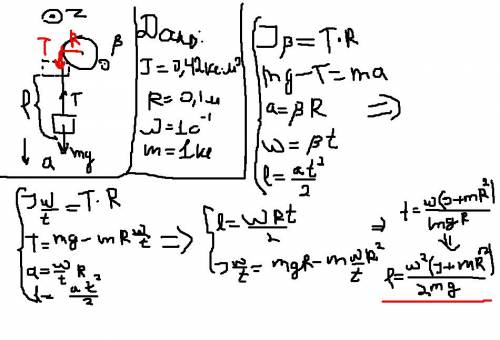 z
T R β
l T
a mg
Дано:
J = 0,42 кг·м²
R = 0,1 м
ω = 10⁻¹
m = 1 кг
Jβ = T·R
mg - T = ma
a = βR ⇒
ω = βt
l = at²/2
J ω/t = T·R
T = mg - mR ω/t ⇒
a = ω/t R
l = at²/2
l = ωRt/2 ⇒
J ω/t = mgR - m ω/t R²
t = ω(J+mR²)/mgR
l = ω²(J+mR²)/2mg